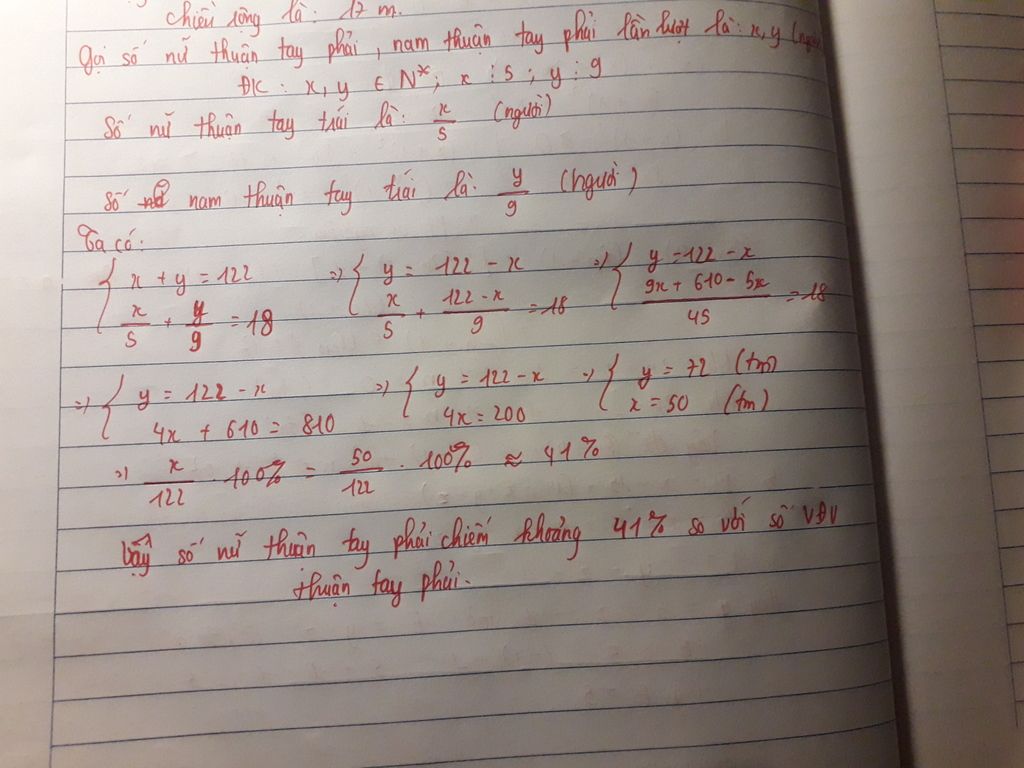 chiều rộng là: 17 m.
Gọi số nữ thuận tay phải, nam thuận tay phải lần lượt là: x, y (người
ĐK: x, y ∈ N*; x ⋮ 5; y ⋮ 9
Số nữ thuận tay trái là: x/5 (người)
Số nam thuận tay trái là: y/9 (người)
Ta có:
{ x + y = 122 ; x/5 + y/9 = 18 => { y = 122 - x ; x/5 + (122 - x)/9 = 18 => { y = 122 - x ; (9x + 610 - 5x)/45 = 18
=> { y = 122 - x ; 4x + 610 = 810 => { y = 122 - x ; 4x = 200 => { y = 72 (tm) ; x = 50 (tm)
=> x/122 . 100% = 50/122 . 100% ≈ 41%
Vậy số nữ thuận tay phải chiếm khoảng 41% so với số VĐV
thuận tay phải.